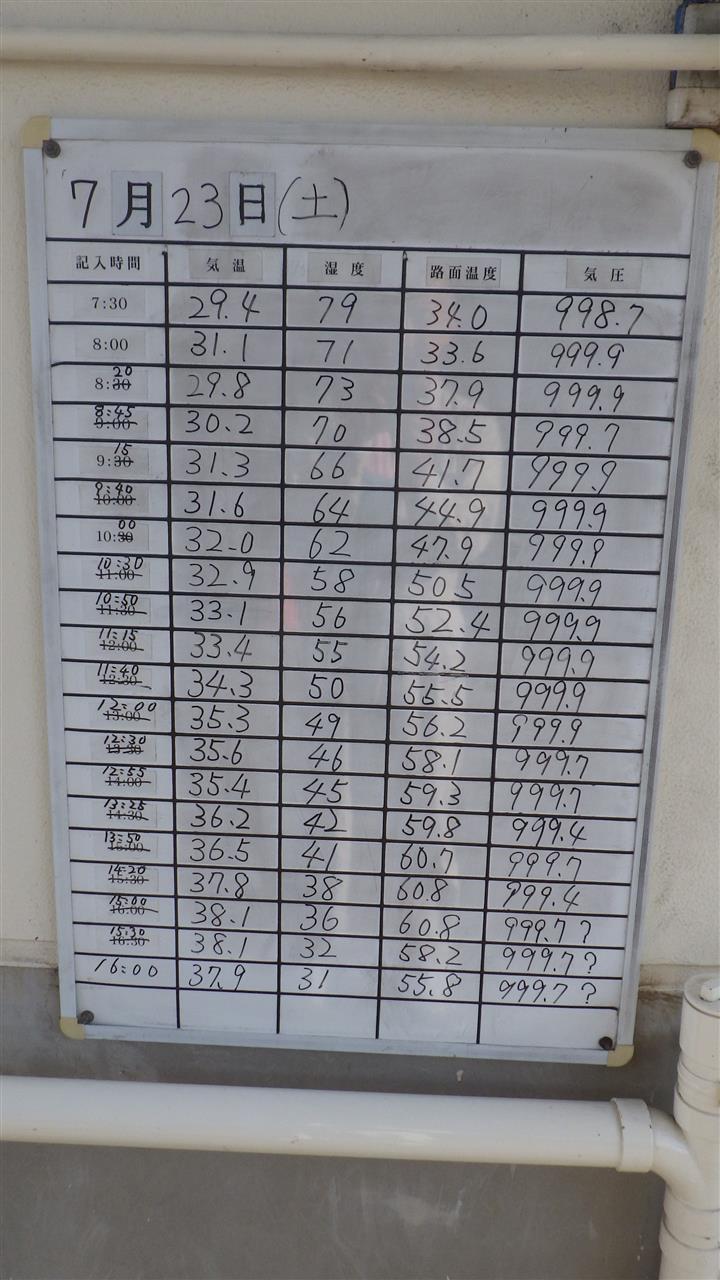 7月23日(土)
記入時間 気温 湿度 路面温度 気圧
7:30 29.4 79 34.0 998.7
8:00 31.1 71 33.6 999.9
8:30 20 29.8 73 37.9 999.9
9:00 8:45 30.2 70 38.5 999.7
9:30 15 31.3 66 41.7 999.9
10:00 9:40 31.6 64 44.9 999.9
10:30 00 32.0 62 47.9 999.9
11:00 10:30 32.9 58 50.5 999.9
11:30 10:50 33.1 56 52.4 999.9
12:00 11:15 33.4 55 54.2 999.9
12:30 11:40 34.3 50 55.5 999.9
13:00 12:00 35.3 49 56.2 999.9
13:30 12:30 35.6 46 58.1 999.7
14:00 12:55 35.4 45 59.3 999.7
14:30 13:25 36.2 42 59.8 999.4
15:00 13:50 36.5 41 60.7 999.7
15:30 14:20 37.8 38 60.8 999.4
16:00 15:00 38.1 36 60.8 999.7?
16:30 15:30 38.1 32 58.2 999.7?
16:00 37.9 31 55.8 999.7?